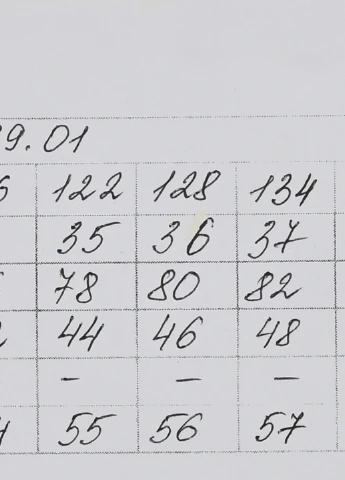 9.01
6 122 128 134
35 36 37
78 80 82
44 46 48
- - -
55 56 57